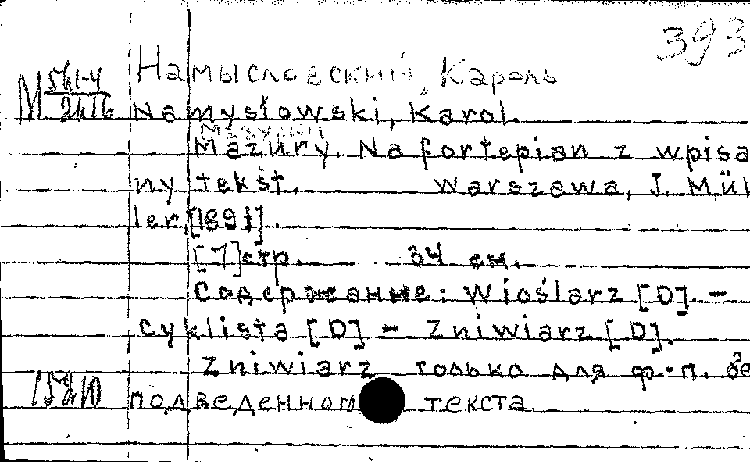 393
Намысловский, Кароль
М 561-4
Namysłowski, Karol.
Мазурки
Mazury. Na fortepian z wpisa
ny tekst. Warszawa, J. Mül
ler, [1891].
[7] стр. 34 см.
Содержание: Wioślarz [D]. –
Cyklista [D] – Żniwiarz [D].
Żniwiarz только для ф-п. бе
подведенного текста